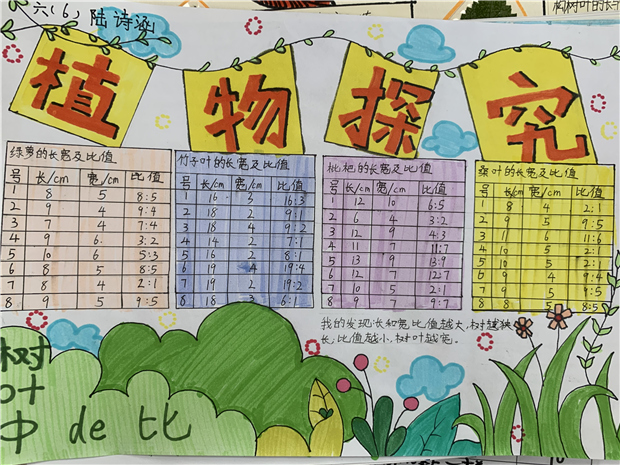 六(6)陆诗涵
植物探究
绿萝的长宽及比值
号 长/cm 宽/cm 比值
1 8 5 8:5
2 9 4 9:4
3 7 4 7:4
4 9 6 3:2
5 10 6 5:3
6 8 5 8:5
7 8 4 2:1
8 9 5 9:5
竹子叶的长宽及比值
号 长/cm 宽/cm 比值
1 16 3 16:3
2 18 2 9:1
3 18 4 9:2
4 14 2 7:1
5 16 2 8:1
6 19 4 19:4
7 19 2 19:2
8 18 3 6:1
枇杷的长宽及比值
号 长/cm 宽/cm 比值
1 12 10 6:5
2 6 4 3:2
3 12 9 4:3
4 11 7 11:7
5 13 9 13:9
6 12 7 12:7
7 10 5 2:1
8 9 7 9:7
桑叶的长宽及比值
号 长/cm 宽/cm 比值
1 8 4 2:1
2 9 5 9:5
3 11 6 11:6
4 10 5 2:1
5 10 5 2:1
6 9 4 9:4
7 9 5 9:5
8 8 5 8:5
我的发现长和宽比值越大,树越狭
长,比值越小,树叶越宽。
树
叶
中 de 比